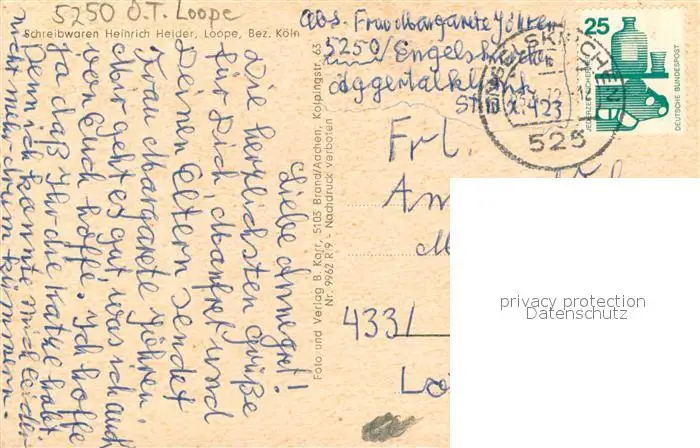 5250 O.T. Loope
Schreibwaren Heinrich Heider, Loope, Bez. Köln
Abs. Frau Margarete Jöhren
5250/Engelskirchen
Aggertalklinik
Stat. X. 423
525
25
JEDERZEIT SICHERHEIT
DEUTSCHE BUNDESPOST
Liebe Annegret!
Die herzlichsten Grüße
für Dich, Manfret und
Deinen Eltern sendet
Frau Margarete Jöhren
Mir geht es gut was ich auch
von Euch hoffe. Ich hoffe
ja daß Ihr die Katze habt
Denn ich konnte mich leider
nicht mehr drum kümmern.
Foto und Verlag B. Karr, 5105 Brand/Aachen, Kolpingstr. 63
Nr. 9962 R 9 - Nachdruck verboten
Frl.
433/
privacy protection
Datenschutz